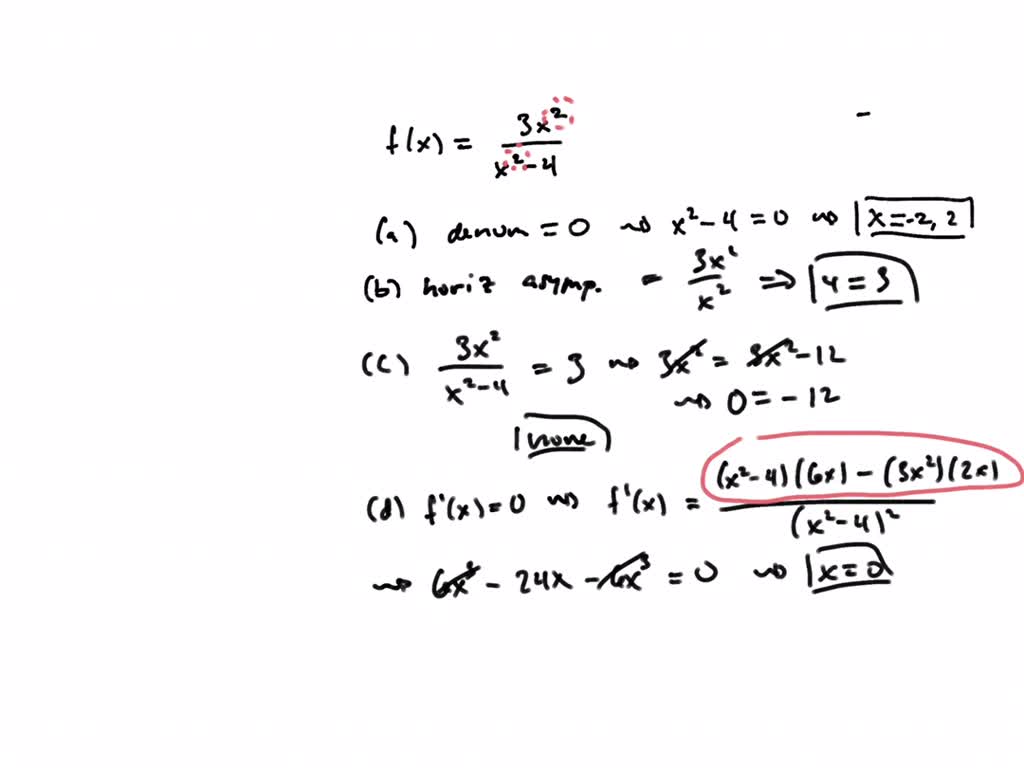 f(x) = 3x² / (x²-4)
(a) denom = 0 ⇝ x²-4 = 0 ⇝ x = -2, 2
(b) horiz asymp. = 3x² / x² ⇒ y = 3
(c) 3x² / (x²-4) = 3 ⇝ 3x² = 3x²-12
⇝ 0 = -12
none
(d) f'(x) = 0 ⇝ f'(x) = ((x²-4)(6x) - (3x²)(2x)) / (x²-4)²
⇝ 6x³ - 24x - 6x³ = 0 ⇝ x = 0